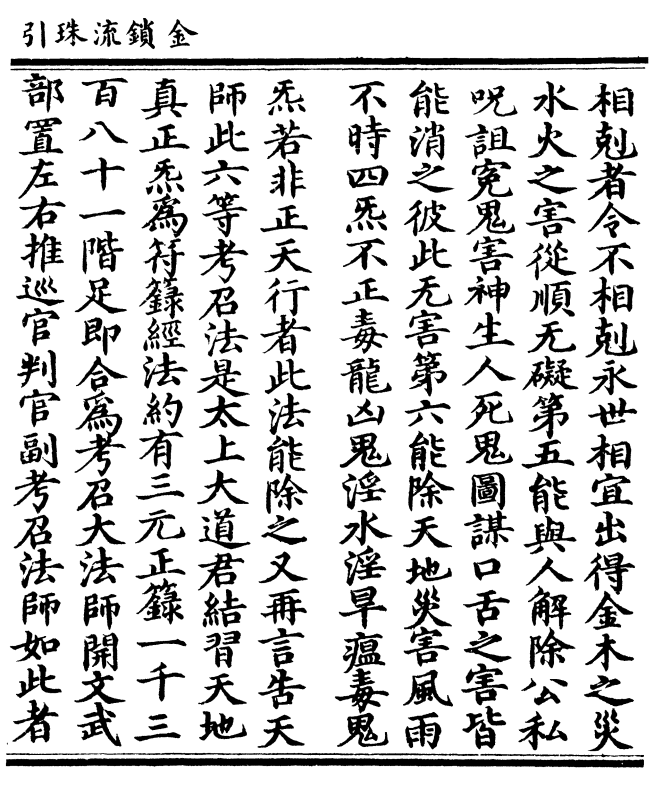 金鎖流珠引
相剋者令不相剋永世相宜出得金木之災
水火之害從順无礙第五能與人解除公私
呪詛寃鬼害神生人死鬼圖謀口舌之害皆
能消之彼此无害第六能除天地災害風雨
不時四炁不正毒龍凶鬼淫水淫旱瘟毒鬼
炁若非正天行者此法能除之又再言告天
師此六等考召法是太上大道君結習天地
真正炁爲符籙經法約有三元正籙一千三
百八十一階足即合爲考召大法師開文武
部置左右推巡官判官副考召法師如此者